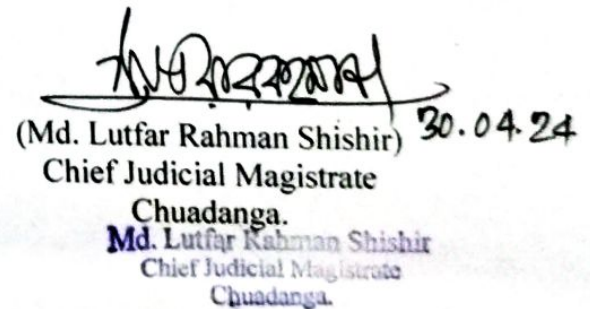 (Md. Lutfar Rahman Shishir) 30.04.24
Chief Judicial Magistrate
Chuadanga.
Md. Lutfar Rahman Shishir
Chief Judicial Magistrate
Chuadanga.